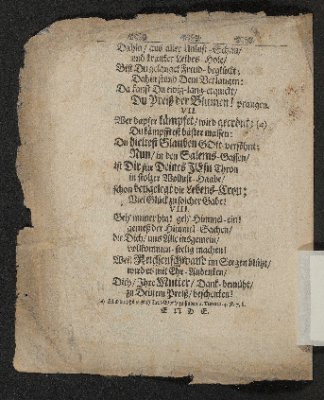 Dahin / aus aller Unlust-Schau /
und krancker Leibes-Höle /
Bist Du gelanget Freud-beglückt;
Dahin stund Dein Verlangen:
Da kanst Du ewig-lang-erquickt /
Du Preiß der Blumen! prangen.
VII.
Wer dapfer kämpfet / wird gecrönt: (a)
Du kämpffst bäster massen:
Du hieltest Glauben GOtt versöhnt:
Nun / in den Salems-Gassen /
ist Dir zur Deines JEsu Thron
in stoltzer Wollust-Haabe /
schon beygelegt die Lebens-Cron;
Viel Glück zu solcher Gabe!
VIII.
Geh / munter hin! geh / Himmel-ein!
genieß der Himmel-Sachen /
die Dich / uns Alle insgemein /
vollkommen-seelig machen!
Weil Reichenschwand im Seegen blüht /
wird es mit Ehr-Andencken /
Dich / Ihre Mutter / Danck-bemüht /
zu Deinem Preiß / beschencken!
ENDE.